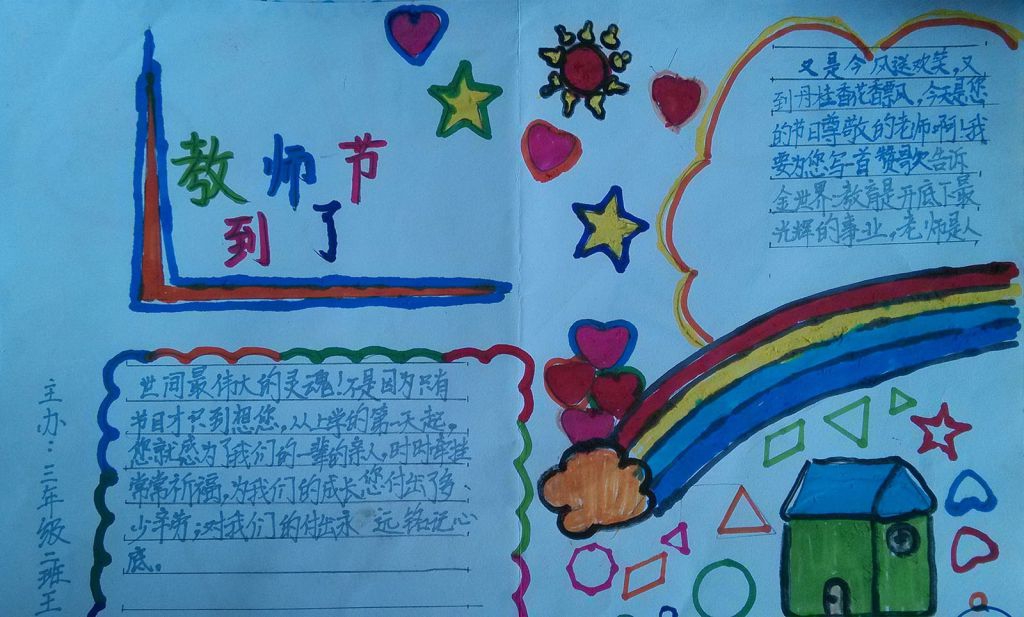 教师节
到了
又是今风送欢笑,又
到丹桂香花香飘风,今天是您
的节日尊敬的老师啊!我
要为您写一首赞歌告诉
金世界:教育是开底下最
光辉的事业,老师是人
世间最伟大的灵魂!不是因为只有
节目才识到想您,从上学的第一天起,
您就感为了我们的一辈的亲人,时时牵挂
常常祈福,为我们的成长您付出了多
少辛劳,对我们的付出永远铭记心
底。
主办:三年级二班王